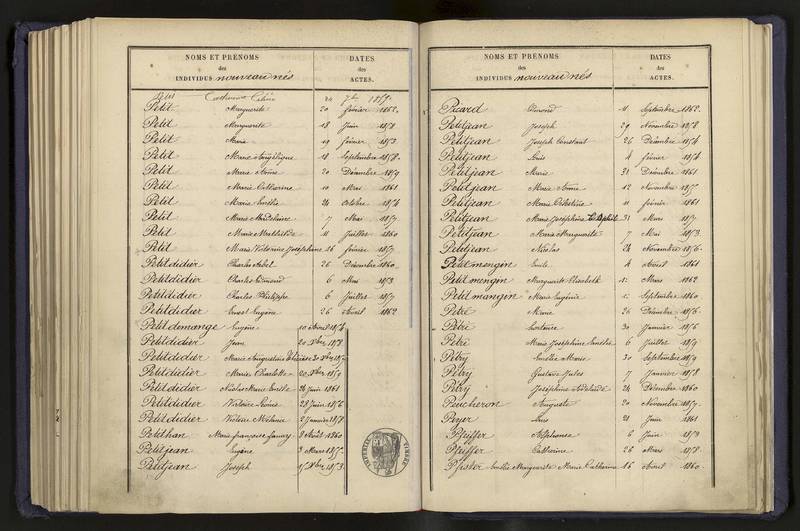 NOMS ET PRÉNOMS
des
INDIVIDUS nouveau nés
DATES
des
ACTES.
Petit Catherine Céline 24 7bre 1857.
Petit Marguerite 20 février 1862.
Petit Marguerite 18 Juin 1858
Petit Marie 19 février 1853
Petit Marie Angélique 18 Septembre 1858.
Petit Marie Anne 20 Décembre 1859
Petit Marie Catherine 10 Mai 1861
Petit Marie Emélie 24 Octobre 1856
Petit Marie Madeleine 7 Mai 1857
Petit Marie Mathilde 11 Juillet 1860
Petit Marie Victorine Joséphine 26 février 1857
Petitdidier Charles Abel 26 Décembre 1860
Petitdidier Charles Edmond 6 Mai 1853
Petitdidier Charles Philippe 6 Juillet 1857
Petitdidier Ernest Eugène 26 Avril 1862
Petitdemange Eugène 10 Avril
Petitdidier Jean 20 Xbre 1858
Petitdidier Marie Augustine 30 Xbre
Petitdidier Marie Charlotte 20 Xbre 1859
Petitdidier Nicolas Marie Emile 24 Juin 1861
Petitdidier Victoire Léonie 28 Juin 1856
Petitdidier Victoire Mélanie 2 Janvier 1858
Petithan Marie françoise fanny 8 Août 1860
Petitjean Eugène 3 Mars
Petitjean Joseph Xbre 1853.
NOMS ET PRÉNOMS
des
INDIVIDUS nouveau nés
DATES
des
ACTES.
Picard Edmond 11 Septembre 1862.
Petitjean Joseph 29 Novembre 1858
Petitjean Joseph Constant 26 Décembre 1854
Petitjean Louis 4 février 1854
Petitjean Marie 31 Décembre 1861
Petitjean Marie Anne 12 Novembre
Petitjean Marie Ernestine 11 février 1861
Petitjean Marie Joséphine 31 Mars 1857
Petitjean Marie Marguerite 7 Mai 1853.
Petitjean Nicolas 24 Novembre 1856.
Petitmengin Emile 4 Avril 1861
Petitmengin Marguerite Elisabeth 1er Mars 1862
Petitmangin Marie Eugénie 1er Septembre 1860
Petré Marie 26 Décembre 1856.
Pétri hortense 30 Janvier 1856
Petri Marie Joséphine Emélie 6 Juillet 1859
Pétry Emélie Marie 30 Septembre 1859
Petry Gustave Jules 7 Janvier 1858
Petry Joséphine Adélaïde 24 Décembre 1860
Peucheron Auguste 20 Novembre 1857.
Peyer Louis 21 Juin 1861
Pfeiffer Alphonse 6 Juin 1859
Pfeiffer Catherine 26 Mars 1858.
Pfister Emélie Marguerite Marie Catherine 16 Avril 1860.